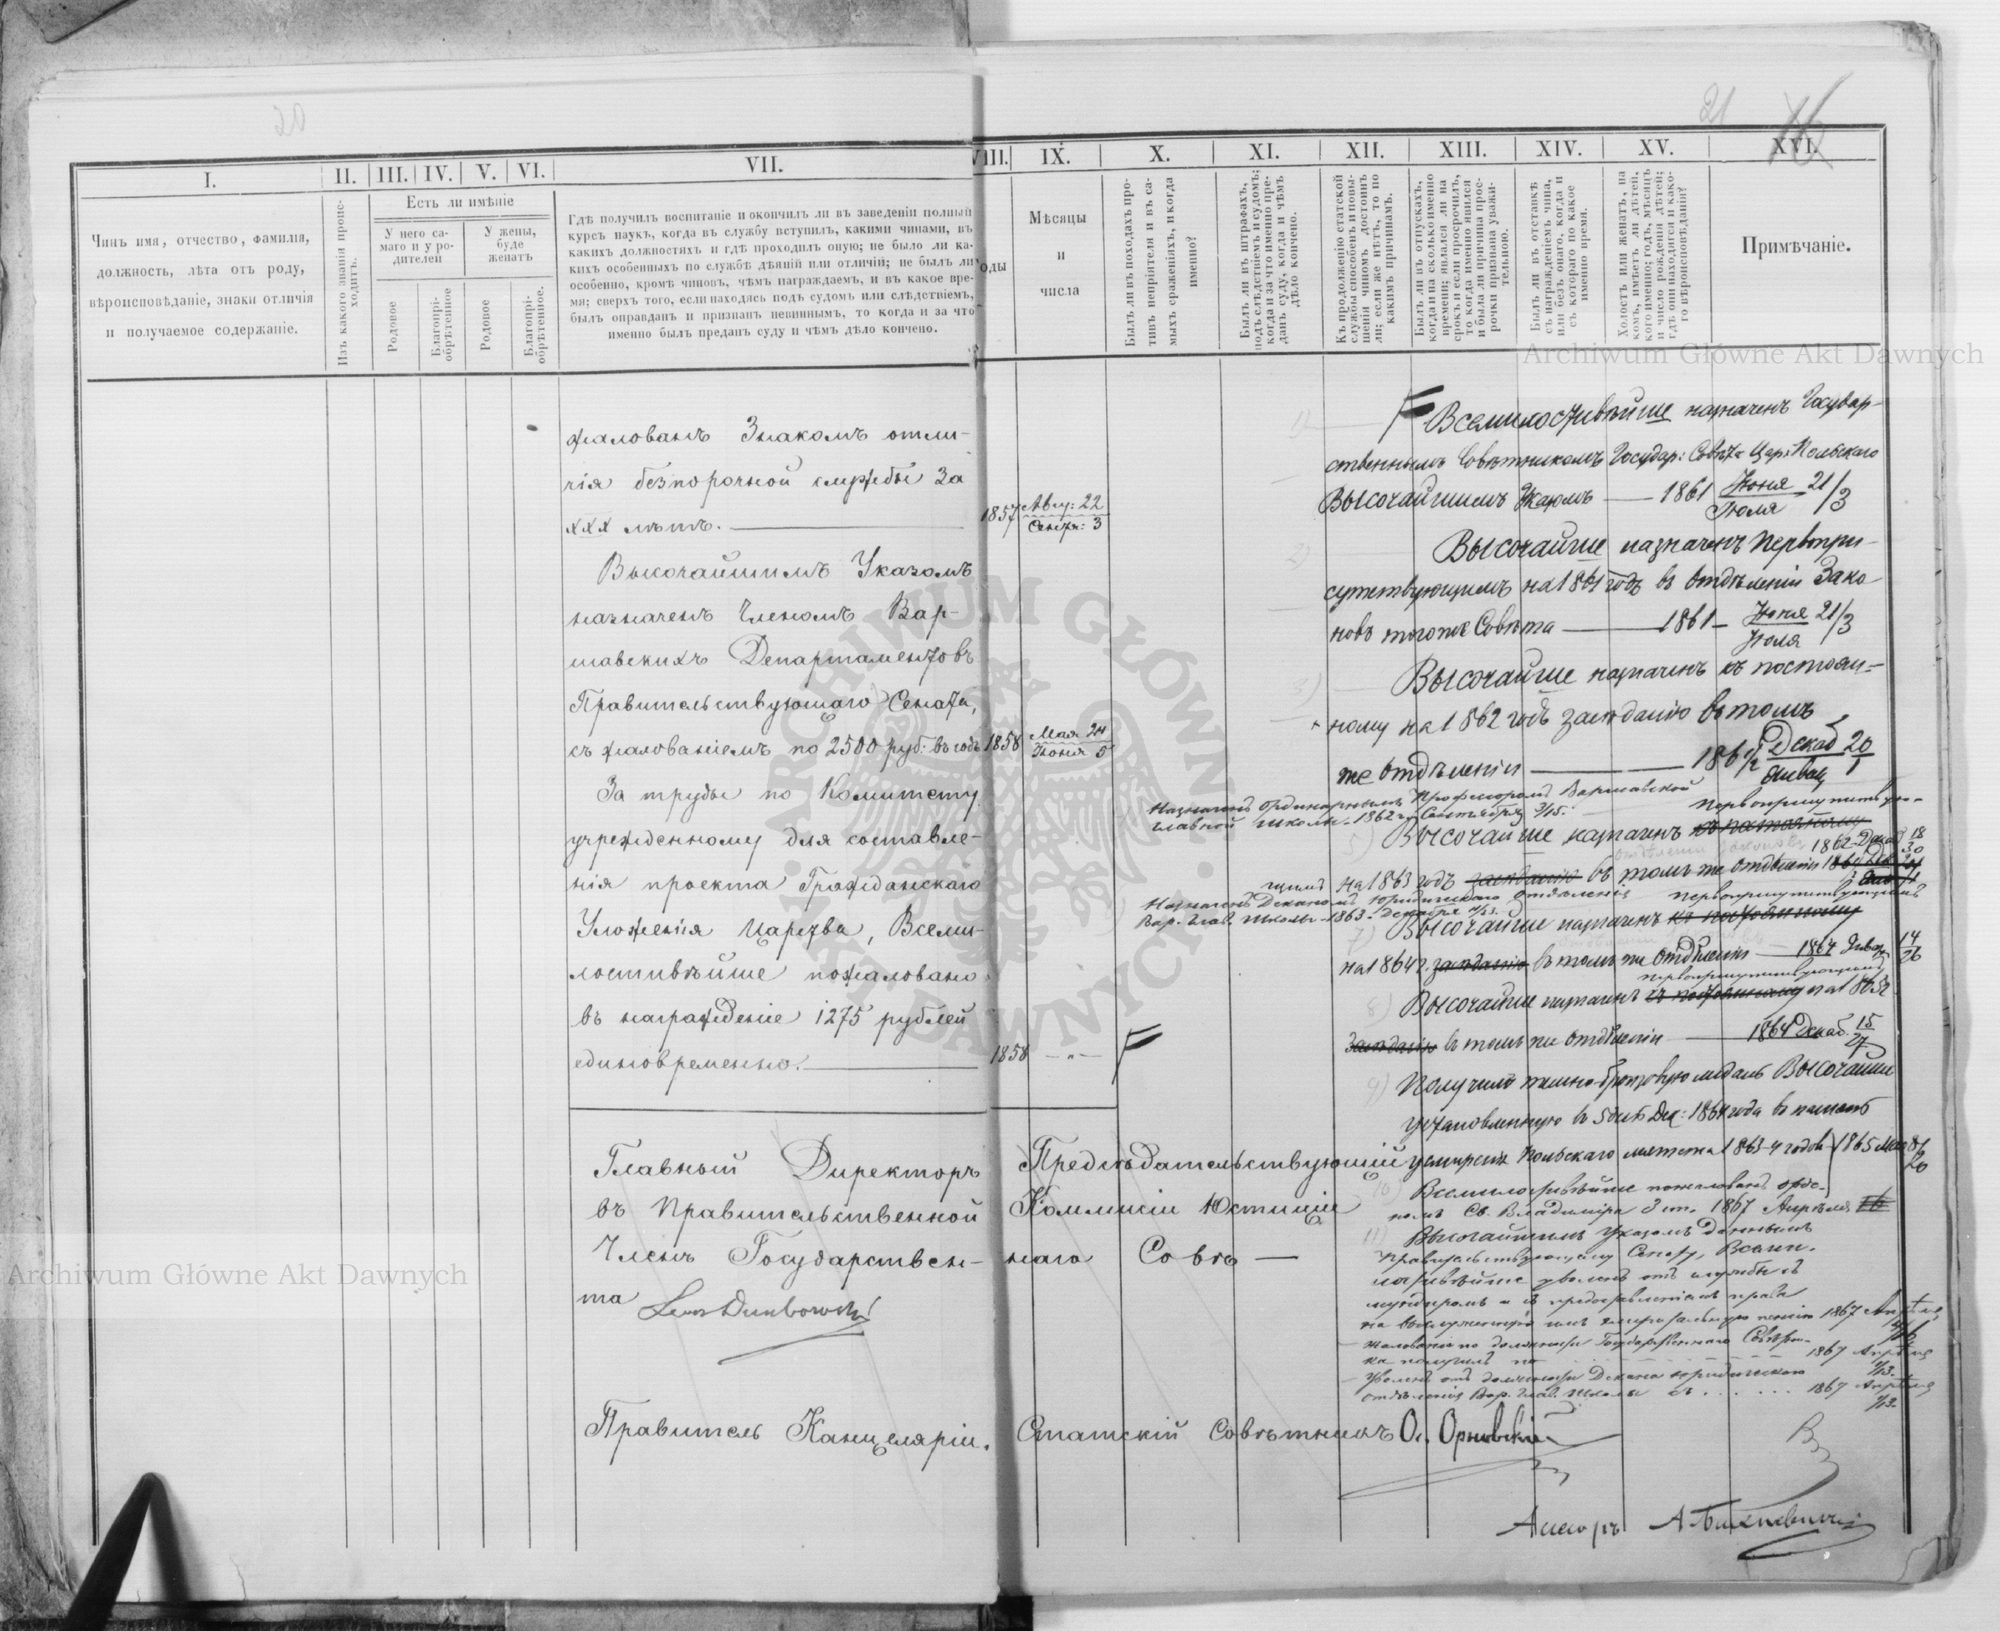 20
21
I.
II.
III.
IV.
V.
VI.
VII.
VIII.
IX.
X.
XI.
XII.
XIII.
XIV.
XV.
XVI.
Чинъ имя, отчество, фамилія,
должность, лѣта отъ роду,
вѣроисповѣданіе, знаки отличія
и получаемое содержаніе.
Изъ какого званія проис-
ходитъ.
Есть ли имѣніе
У него са-
маго и у ро-
дителей
У жены,
буде
женатъ
Родовое
Благопрі-
обрѣтенное
Родовое
Благопрі-
обрѣтенное.
Гдѣ получилъ воспитаніе и окончилъ ли въ заведеніи полный
курсъ наукъ, когда въ службу вступилъ, какими чинами, въ
какихъ должностяхъ и гдѣ проходилъ оную; не было ли ка-
кихъ особенныхъ по службѣ дѣяній или отличій; не былъ ли
особенно, кромѣ чиновъ, чѣмъ награждаемъ, и въ какое вре-
мя; сверхъ того, если находясь подъ судомъ или слѣдствіемъ,
былъ оправданъ и признанъ невиннымъ, то когда и за что
именно былъ преданъ суду и чѣмъ дѣло кончено.
оды
Мѣсяцы
и
числа
Былъ ли въ походахъ про-
тивъ непріятеля и въ са-
мыхъ сраженіяхъ, и когда
именно?
Былъ ли въ штрафахъ,
подъ слѣдствіемъ и судомъ;
когда и за что именно пре-
данъ суду, когда и чѣмъ
дѣло кончено.
Къ продолженію статской
службы способенъ и повы-
шенія чиномъ достоинъ
ли; если же нѣтъ, то по
какимъ причинамъ.
Былъ ли въ отпускахъ,
когда и на сколько именно
времени; являлся ли на
срокъ и если просрочилъ,
то когда именно явился
и была ли причина прос-
рочки признана уважи-
тельною.
Былъ ли въ отставкѣ
съ награжденіемъ чина,
или безъ онаго, когда и
съ котораго по какое
именно время.
Холостъ или женатъ, на
комъ, имѣетъ ли дѣтей,
кого именно; годъ, мѣсяцъ
и число рожденія дѣтей;
гдѣ они находятся и како-
го вѣроисповѣданія?
Примѣчаніе.
жалованъ Знакомъ отли-
чія безпорочной службы за
XXX лѣтъ.
1857 Авгу: 22
Сентя: 3
Высочайшимъ Указомъ
назначенъ Членомъ Вар-
шавскихъ Департаментовъ
Правительствующаго Сената,
съ жалованіемъ по 2500 руб: въ годъ
1858 Мая 24
Іюня 5
За труды по Комитету
учрежденному для составле-
нія проекта Гражданскаго
Уложенія Царства, Всеми-
лостивѣйше пожаловано
въ награжденіе 1275 рублей
единовременно.
1858 — „ —
Главный Директоръ Предсѣдательствующій
въ Правительственной Коммисіи Юстиціи
Членъ Государствен- наго Совѣ-
та
Правитель Канцеляріи, Статскій Совѣтникъ О. Орловскій
1) Всемилостивѣйше назначенъ Государ-
ственнымъ Совѣтникомъ Государ: Совѣта Цар: Польскаго
Высочайшимъ Указомъ — 1861 Іюня 21/3
Іюля
2) Высочайше назначенъ Первопри-
сутствующимъ на 1861 годъ въ Отдѣленіи Зако-
новъ тогоже Совѣта — 1861 — Іюня 21/3
Іюля
3) Высочайше назначенъ къ постоян-
ному на 1862 годъ засѣданію въ томъ
же Отдѣленіи — 1861/2 Декаб 20
Январ 1
Назначенъ Ординарнымъ Профессоромъ Варшавской
Главной Школы. 1862 г. Сентября 3/15.
Первоприсутствую-
5) Высочайше назначенъ къ постоянному
1862 Декаб 18
30
щимъ на 1863 годъ засѣданію въ томъ же Отдѣленіи
Назначенъ Деканомъ Юридическаго Отдѣленія
Вар. Глав. Школы. 1863. Декабря
первоприсутствующимъ
7) Высочайше назначенъ къ постоянному
на 1864 г. засѣданію въ томъ же Отдѣленіи — 1864 Январ 14
26
первоприсутствующимъ
8) Высочайше назначенъ къ постоянному на 1865 г.
засѣданію въ томъ же Отдѣленіи — 1864 Декаб. 15
27
9) Получилъ темно-бронзовую медаль Высочайше
установленную въ память
усмиренія Польскаго мятежа 1863-4 годовъ 1865 Мая 8/20
10) Всемилостивѣйше пожалованъ орде-
номъ Св. Владиміра 3 ст. 1867 Апрѣля 16
11) Высочайшимъ Указомъ даннымъ
Правительствующему Сенату, Всеми-
лостивѣйше уволенъ отъ службы съ
мундиромъ и съ предоставленіемъ права
на выслуженную имъ эмеритальную пенсію 1867 Апрѣля
Жалованіе по должности Государственнаго Совѣтни-
ка получилъ по . . . 1867 Апрѣля
1/13.
Уволенъ отъ должности Декана юридическаго
отдѣленія Вар. Глав. Школы съ . . . . . . 1867 Апрѣля
1/13.
Ассесоръ
Archiwum Główne Akt Dawnych
Archiwum Główne Akt Dawnych
ARCHIWUM GŁÓWNE AKT DAWNYCH